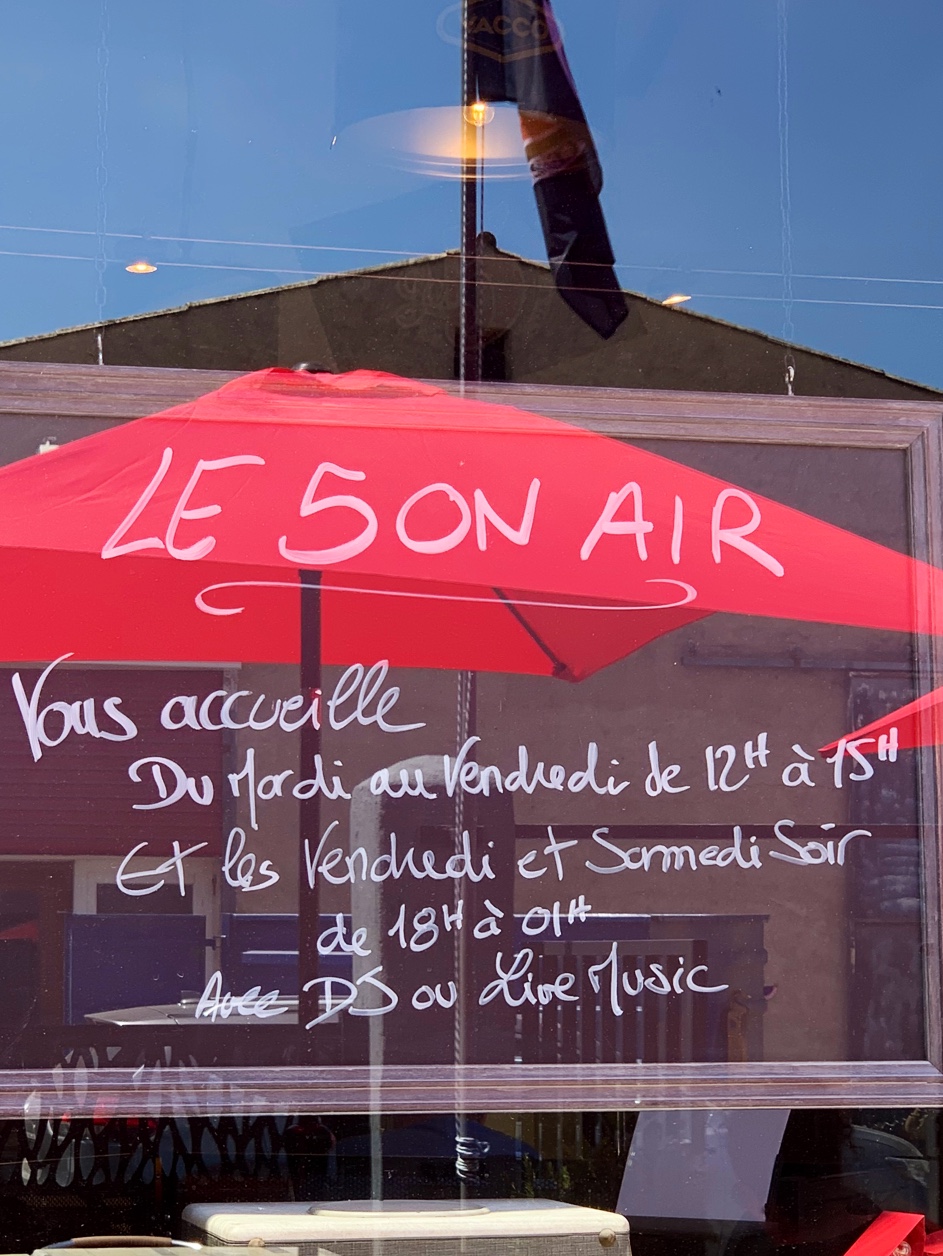 YACCO
LE SON AIR
Vous accueille
Du Mardi au Vendredi de 12H à 15H
Et les Vendredi et Samedi Soir
de 18H à 01H
Avec DJ ou Live Music